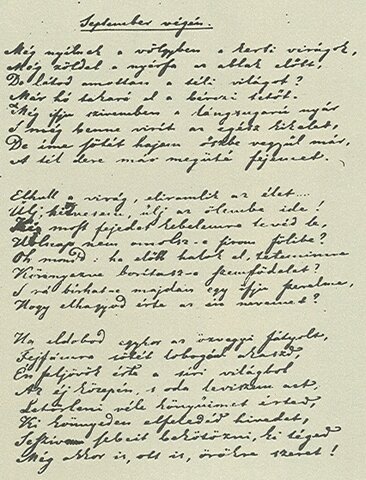 September végén.
Még nyílnak a völgyben a kerti virágok,
Még zöldel a nyárfa az ablak előtt,
De látod amottan a téli világot?
Már hó takará el a bérczi tetőt.
Még ifju szivemben a lángsugarú nyár
S még benne virít az egész kikelet,
De íme sötét hajam őszbe vegyűl már,
A tél dere már megüté fejemet.
Elhull a virág, eliramlik az élet....
Űlj, hitvesem, űlj az ölembe ide!
Ki most fejedet kebelemre tevéd le,
Holnap nem omolsz-e sirom fölibe?
Oh mondd: ha előbb halok el, tetemimre
Könnyezve borítasz-e szemfödelet?
S rá birhat-e majdan egy ifju szerelme,
Hogy elhagyod érte az én nevemet?
Ha eldobod egykor az özvegyi fátyolt,
Fejfámra sötét lobogóul akaszd,
Én feljövök érte a síri világból
Az éj közepén, s oda leviszem azt,
Letörleni véle könyűimet érted,
Ki könnyeden elfeledéd hivedet,
S e szív sebeit bekötözni, ki téged
Még akkor is, ott is, örökre szeret!